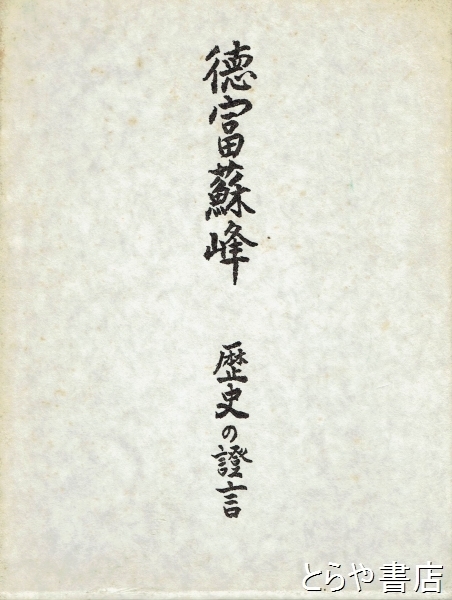 徳富蘇峰
歴史の證言
とらや書店